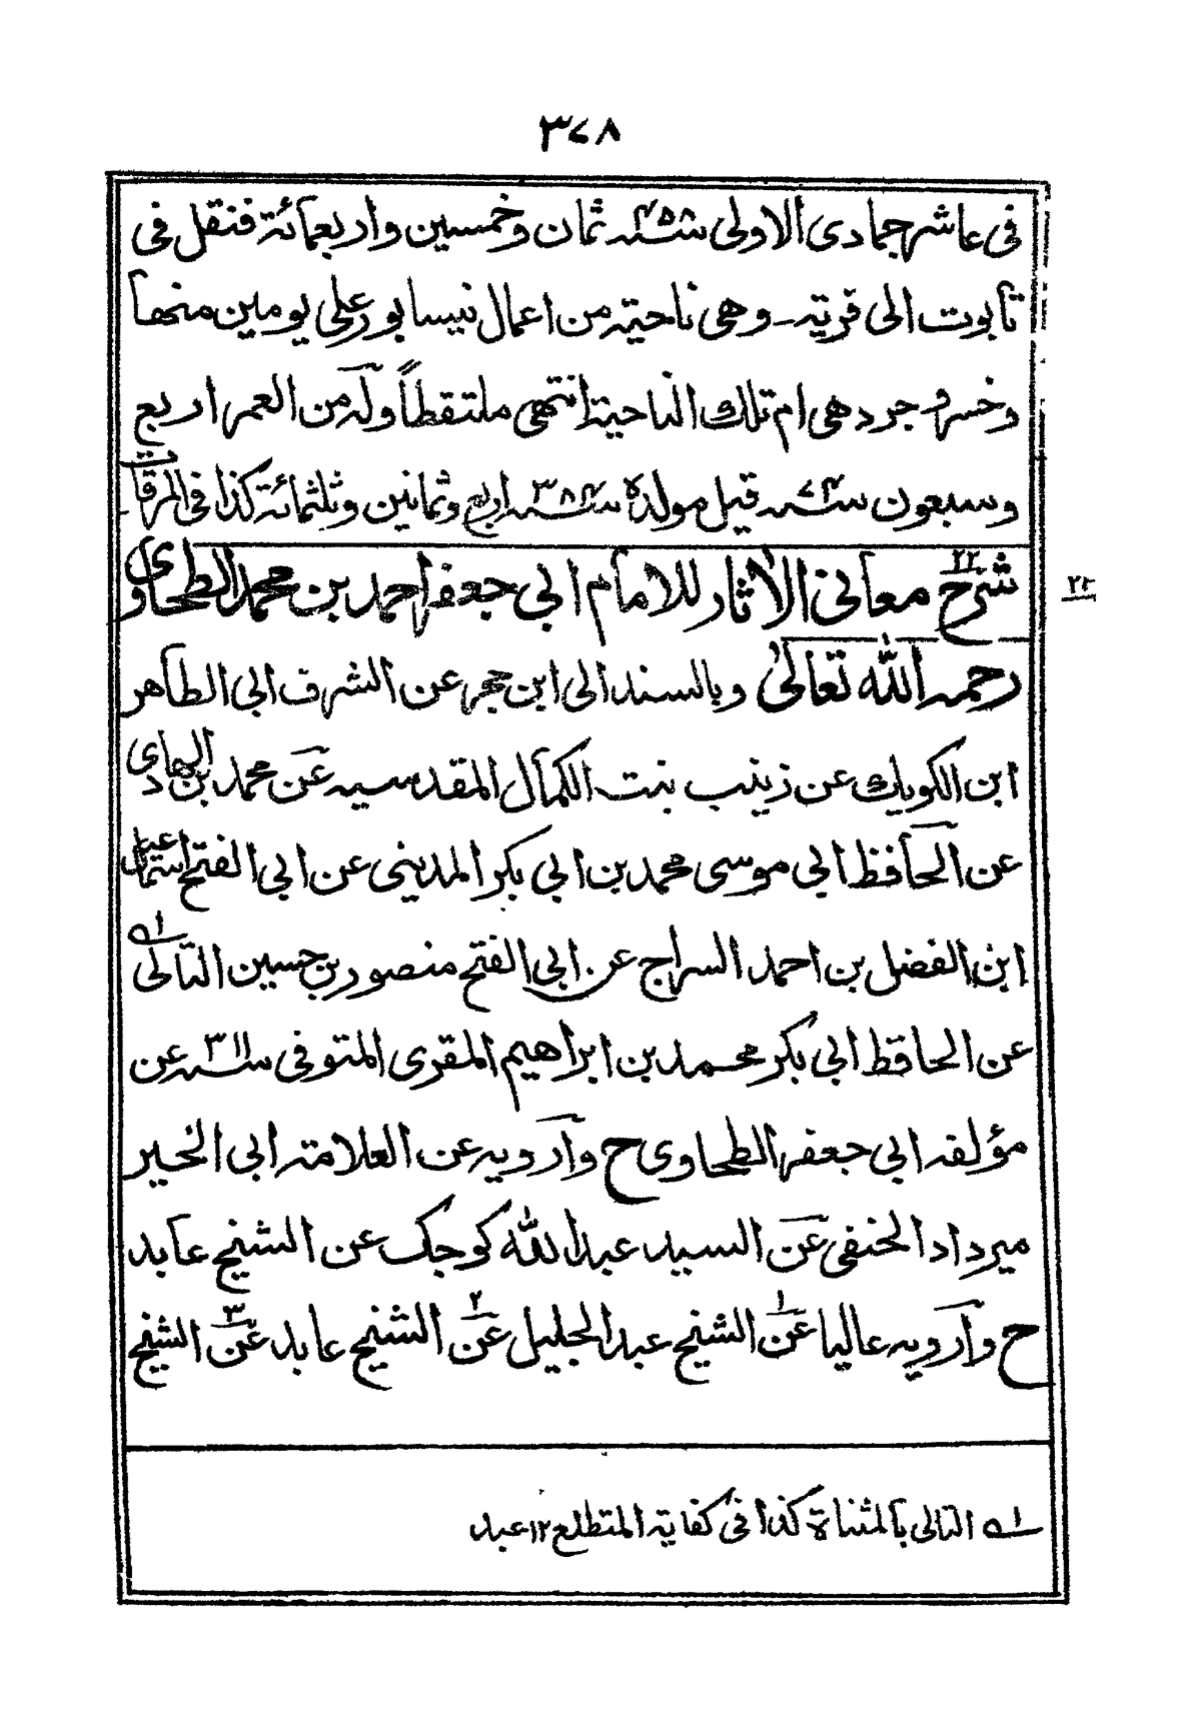 ٣٧٨
فى عاشر جمادى الاولى سنة ٤٥٨ ثمان وخمسين واربعمائة فنقل فى
تابوت الى قرية - وهى ناحية من اعمال نيسابور على يومين منها
وخسر وجرد هى ام تلك الناحية انتهى ملتقطاً وله من العمر اربع
وسبعون سنة ٧٤ قيل مولده سنة ٣٨٤ اربع وثمانين وثلثمائة كذا فى المرقات
٢٢
شرح معانى الاثار للامام ابي جعفر احمد بن محمد الطحاوى
٢٢
رحمه الله تعالى وبالسند الى ابن حجر عن الشرف ابى الطاهر
ابن الكويك عن زينب بنت الكمال المقدسيه عن محمد بن الهادى
عن الحافظ ابي موسى محمد بن ابي بكر المدينى عن ابي الفتح اسمعيل
ابن الفضل بن احمد السراج عن ابى الفتح منصور بن حسين التالى ١ه
عن الحاقظ ابي بكر محمد بن ابراهيم المقرى المتوفى سنة ٣١١ عن
مؤلفه ابي جعفر الطحاوى ح وارويه عن العلامة ابى الخير
ميرداد الحنفى عن السيد عبد الله كوجك عن الشيخ عابد
ح وارويه عاليا عن ١ الشيخ عبد الجليل عن ٢ الشيخ عابد عن ٣ الشيخ
١ه التالى بالمثناة كذا فى كفاية المتطلع ١٢ عبد